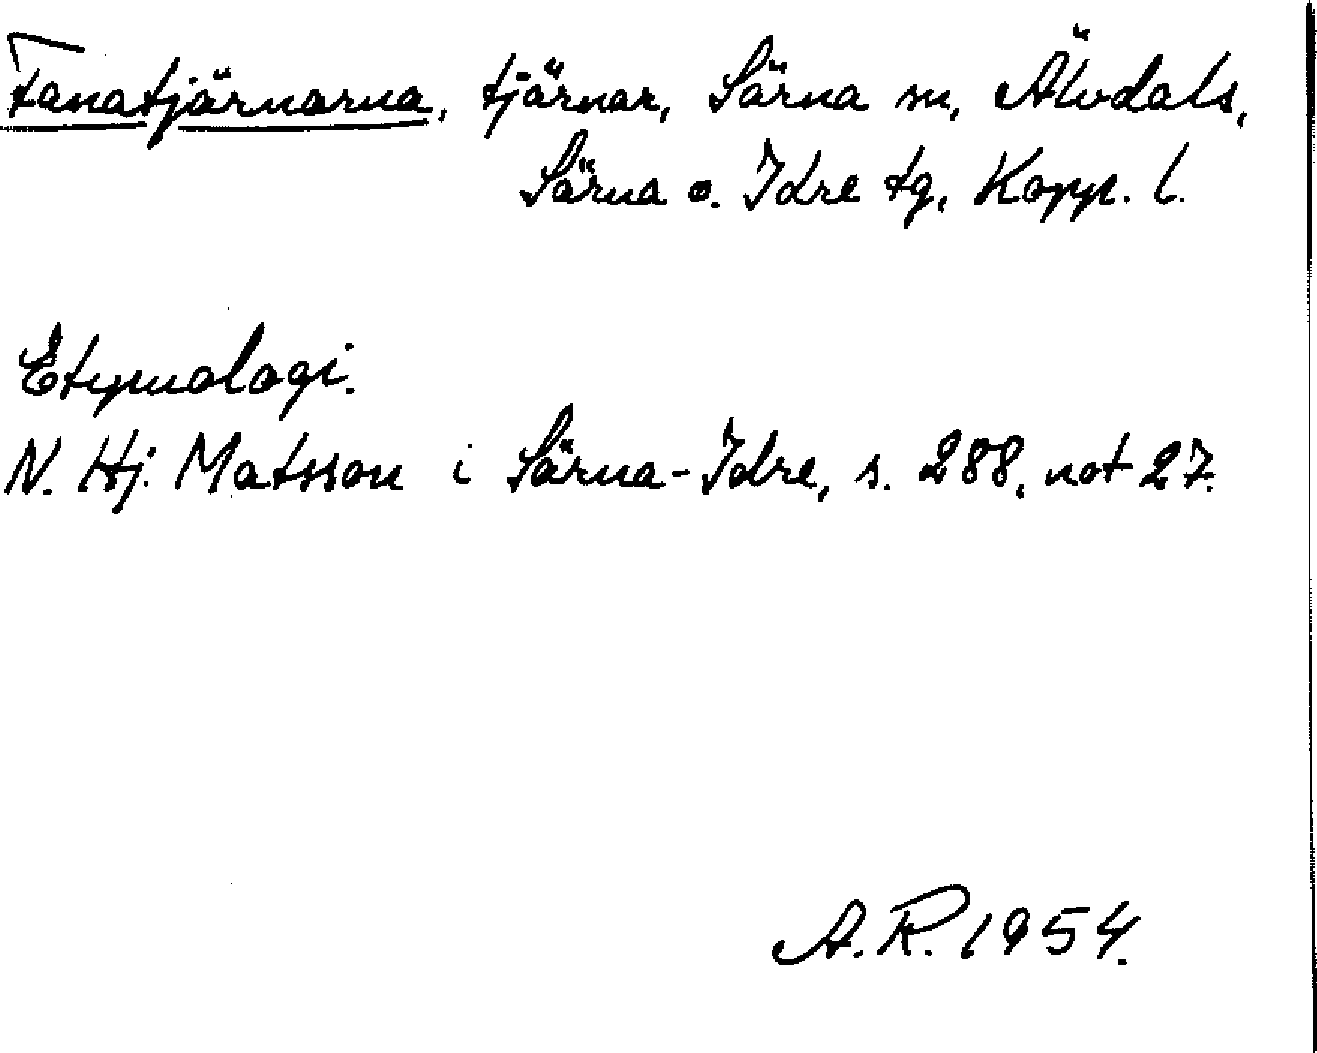 Tanatjärnarna, tjärnar, Särna sn, Älvdals,
Särna o. Idre tg, Kopp. l.
Etymologi.
N. Hj. Matsson i Särna-Idre, s. 288, not 27.
A.R. 1954.